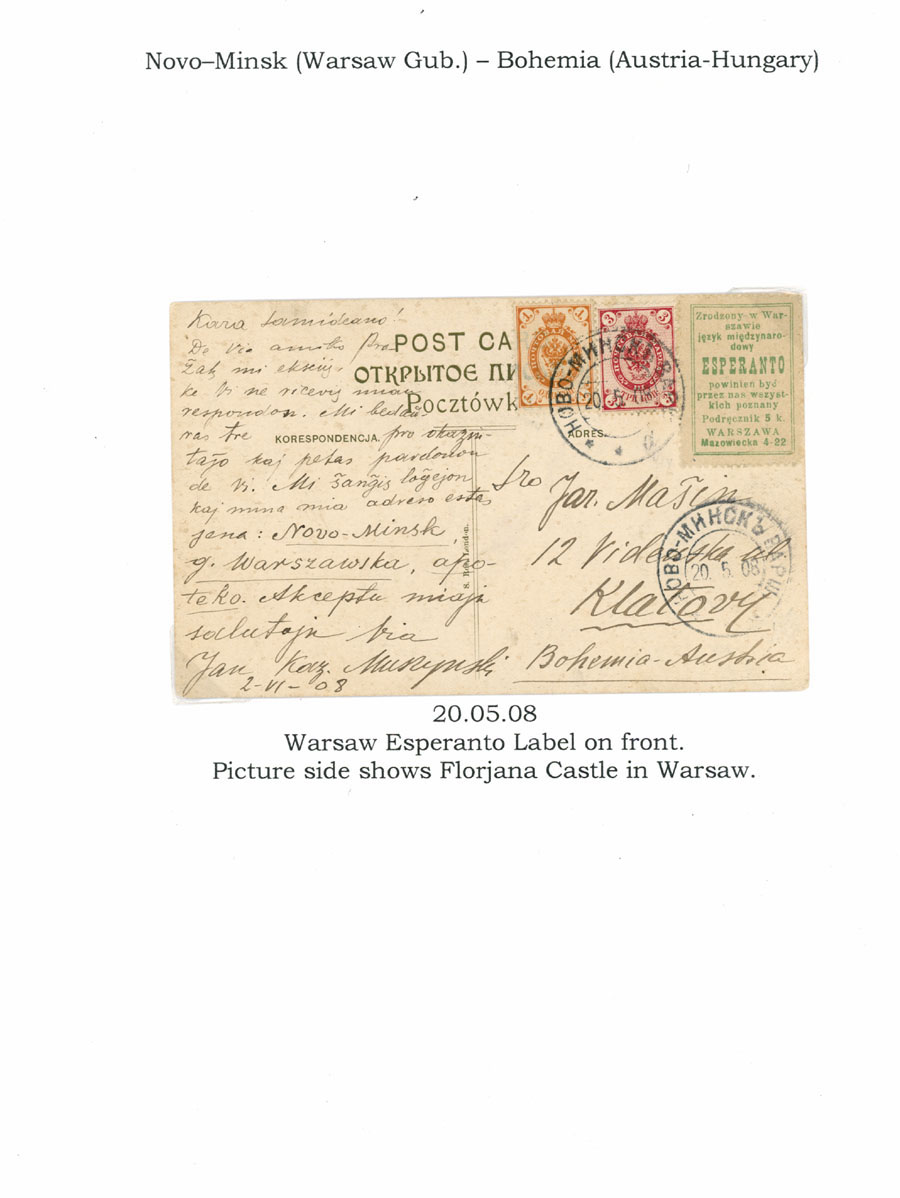 Novo–Minsk (Warsaw Gub.) – Bohemia (Austria-Hungary)
Kara samideano!
De Via amiko Pro
ŝak mi eksciis
ke Vi ne ricevis mian
respondon. Mi bedaŭ
ras tre pro okazin-
taĵo kaj petas pardonon
de Vi. Mi ŝanĝis loĝejon
kaj nuna mia adreso estas
jena: Novo-Minsk,
g. Warszawska, apo-
teko. Akceptu miajn
salutojn Via
Jan Kaz. Muszynski
2-VI-08
POST CA
ОТКРЫТОЕ ПИ
Pocztówk
KORESPONDENCJA.
ADRES.
S. London.
1 1
3 3
3 3
НОВО-МИНСКЪ
20. 5.
Zrodzony w War-
szawie
język międzynaro-
dowy
ESPERANTO
powinien być
przez nas wszyst-
kich poznany
Podręcznik 5 k.
WARSZAWA
Mazowiecka 4-22
Sro Jar. Mašin
12 Videnska ul.
Klatovy
Bohemia-Austria
НОВО-МИНСКЪ ВАРШ.
20. 5. 08
20.05.08
Warsaw Esperanto Label on front.
Picture side shows Florjana Castle in Warsaw.